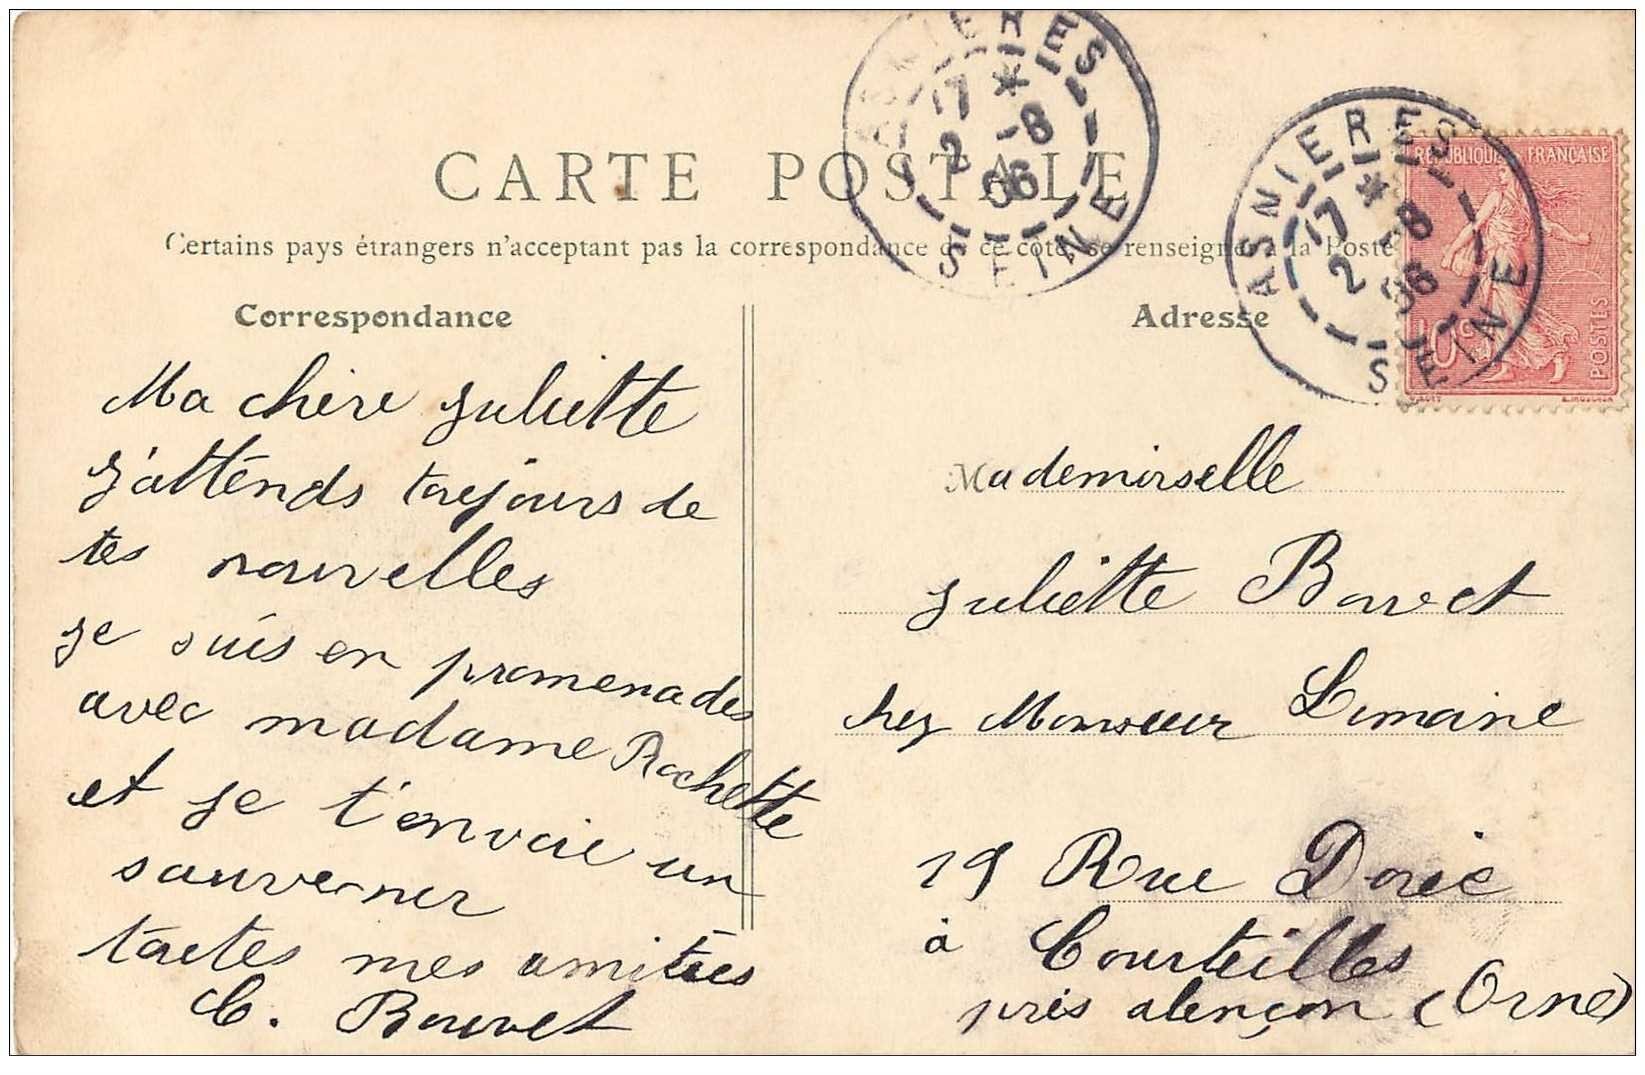 CARTE POSTALE
Certains pays étrangers n'acceptant pas la correspondance de ce côté, se renseigner à la Poste
Correspondance
Ma chère Juliette
J'attends toujours de
tes nouvelles
je suis en promenades
avec madame Rochette
et je t'envoie un
souvenir
toutes mes amitiées
C. Bouvet
ASNIERES
17 *
2 -8
06
SEINE
ASNIERES
17 *
2 -8
06
SEINE
REPUBLIQUE FRANÇAISE
10c
POSTES
Adresse
Mademoiselle
Juliette Bouvet
chez Monsieur Lemoine
19 Rue
à Courteilles
près alençon (Orne)